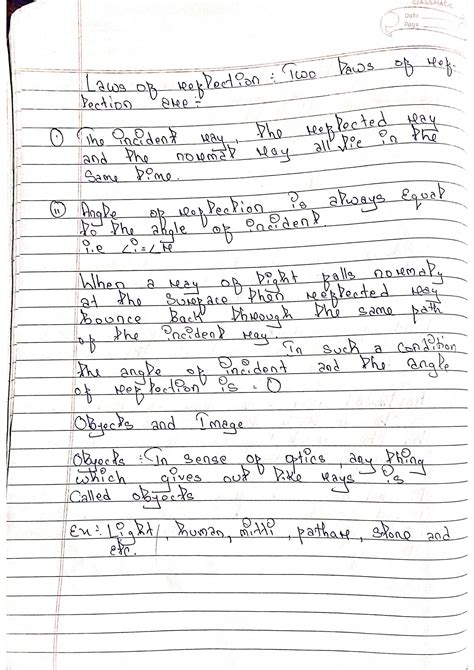 CLASSMATE
Date
Page
Laws of reflection : Two laws of ref-
lection are :-
(i) The incident ray, the reflected ray
and the normal ray all lie in the
same time.
(ii) Angle of reflection is always Equal
to the angle of incident.
i.e ∠i=∠r
When a ray of light falls normaly
at the surface then reflected ray
bounce back through the same path
of the incident ray.
In such a condition
the angle of incident and the angle
of reflection is = 0
Obyects and Image
Obyects : In sense of optics, any thing
which gives out like rays is
Called obyects
Ex:- Light, human, mitti, pathare, stone and
etc.